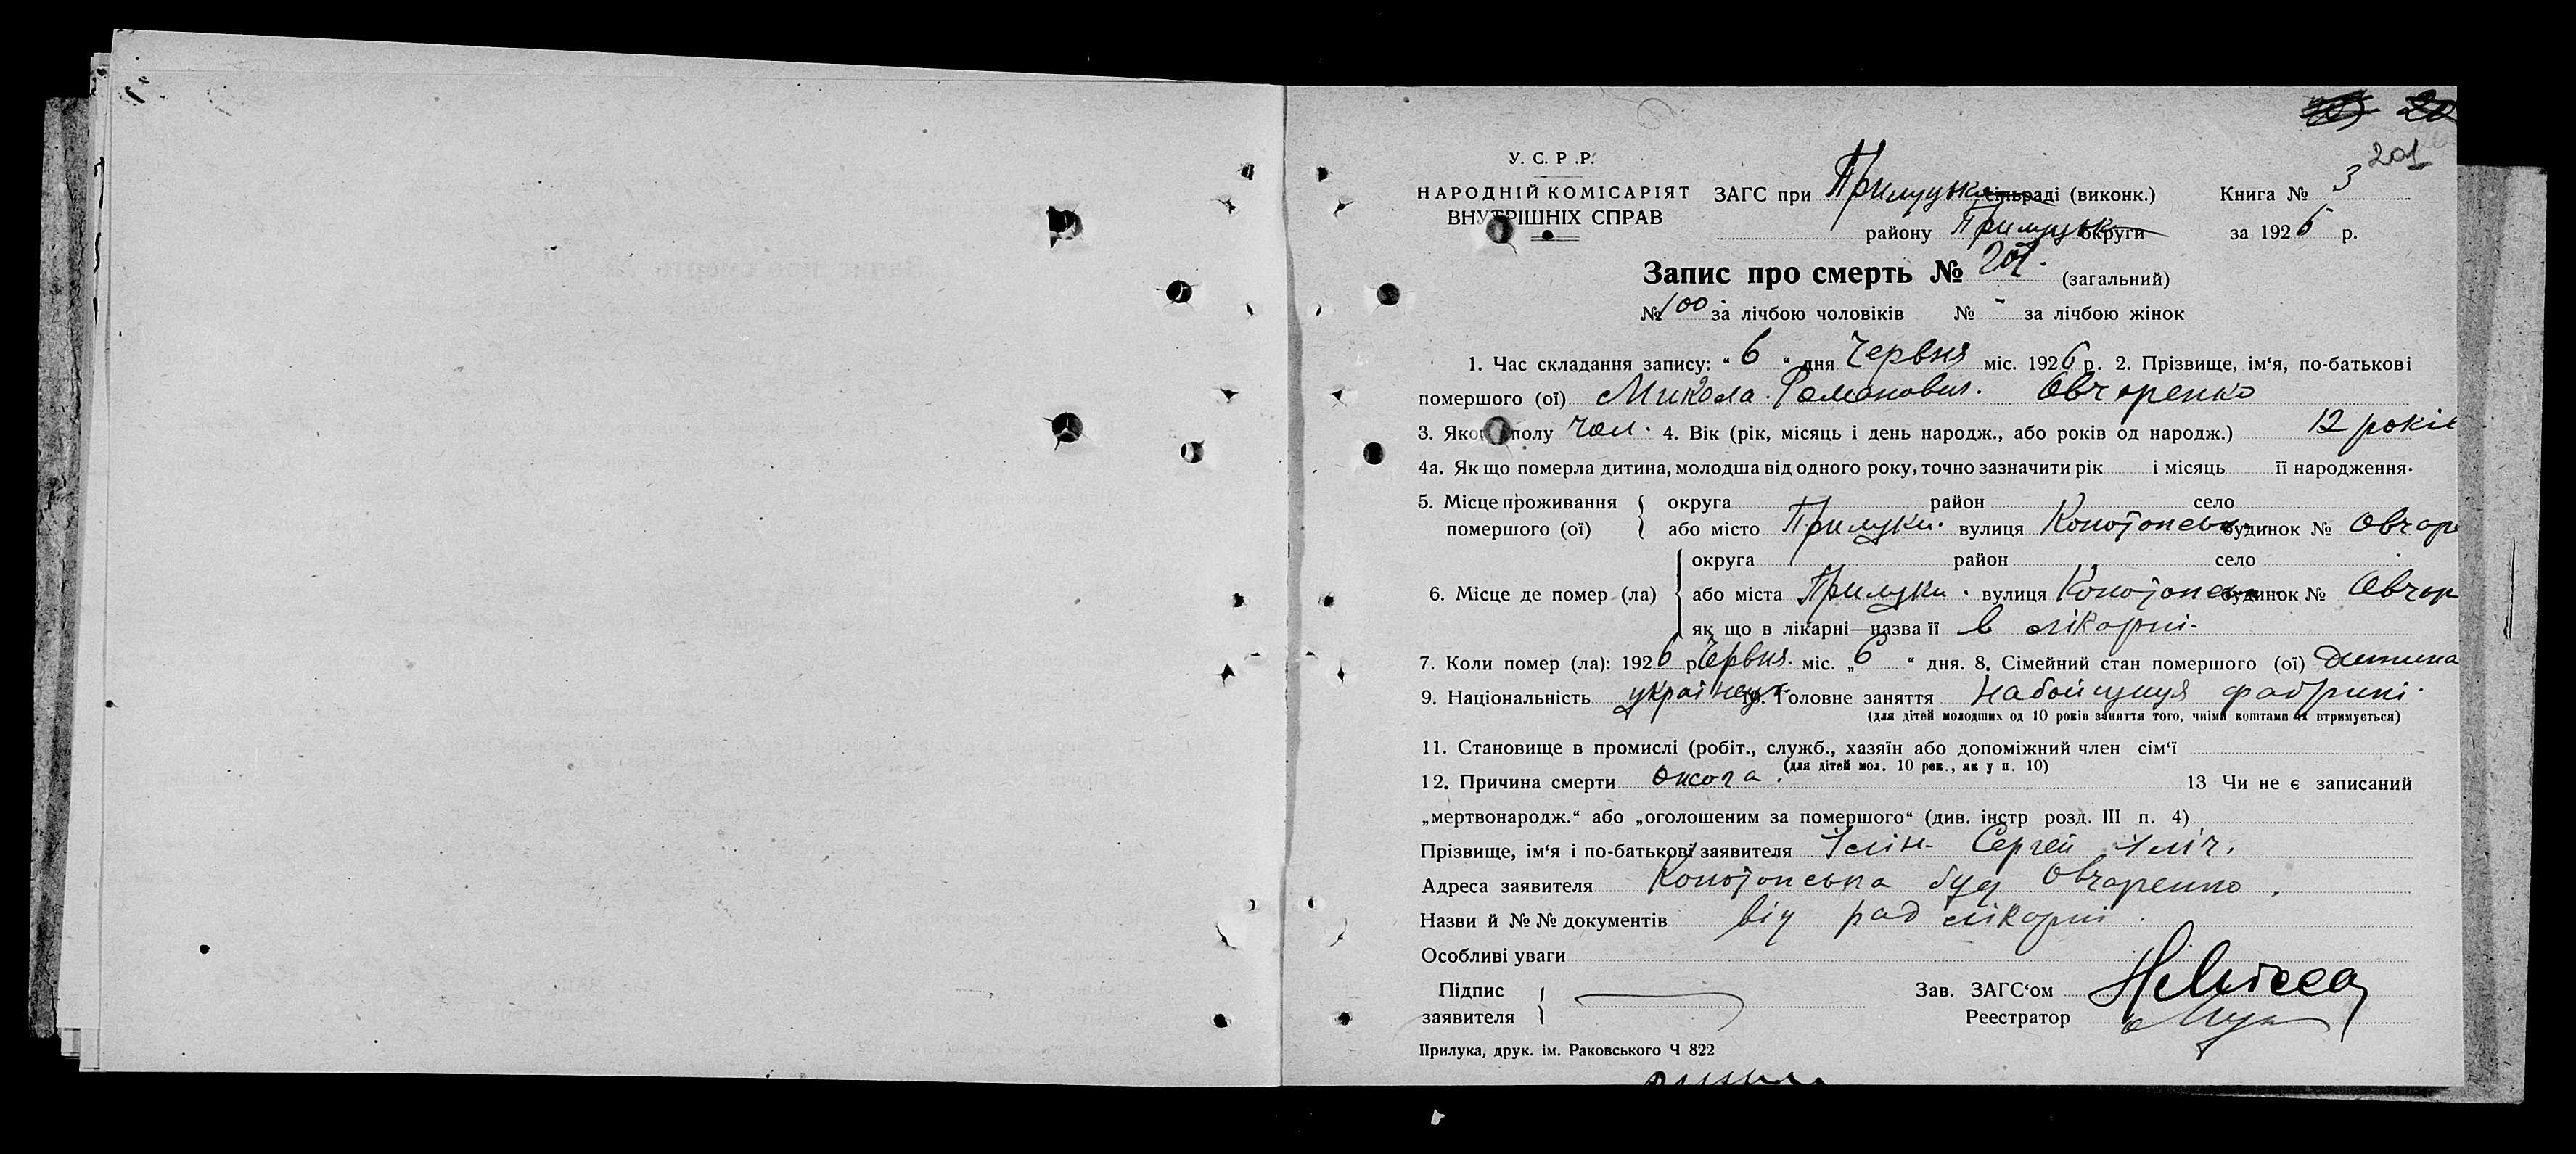 201
У. С. Р .Р.
НАРОДНІЙ КОМІСАРІЯТ
ВНУТРІШНІХ СПРАВ
ЗАГС при Прилуцьк сільраді (виконк.) Книга № 3
району Прилуцьк округи за 1926 р.
Запис про смерть № 201. (загальний)
№ 100 за лічбою чоловіків № - за лічбою жінок
1. Час складання запису: “ 6 “ дня Червня міс. 1926 р. 2. Прізвище, ім‘я, по-батькові
помершого (ої) Микола Романович. Овчаренко
3. Якого полу чол. 4. Вік (рік, місяць і день народж., або років од народж.) 12 років
4а. Як що померла дитина, молодша від одного року, точно зазначити рік і місяць її народження.
5. Місце проживання помершого (ої) округа район село
або місто Прилуки. вулиця Конотопськ. будинок № Овчар
6. Місце де помер (ла) округа район село
або міста Прилуки. вулиця Конотопськ будинок № Овчар
як що в лікарні—назва її в лікарні.
7. Коли помер (ла): 1926 р. Червня. міс. „6 “ дня. 8. Сімейний стан помершого (ої) дитина
9. Національність українец 10. Головне заняття
(для дітей молодших од 10 років заняття того, чиїми коштами їх втримується)
11. Становище в промислі (робіт., служб., хазяїн або допоміжний член сім‘ї
(для дітей мол. 10 рок., як у п. 10)
12. Причина смерти 13 Чи не є записаний
„мертвонародж.“ або „оголошеним за помершого“ (див. інстр розд. III п. 4)
Прізвище, ім‘я і по-батькові заявителя Ілін Сергей Іліч.
Адреса заявителя Конотопська буд Овчаренко.
Назви й № № документів від рад лікарні.
Особливі уваги
Підпис заявителя
Зав. ЗАГС‘ом
Реестратор
Прилука, друк. ім. Раковського Ч 822